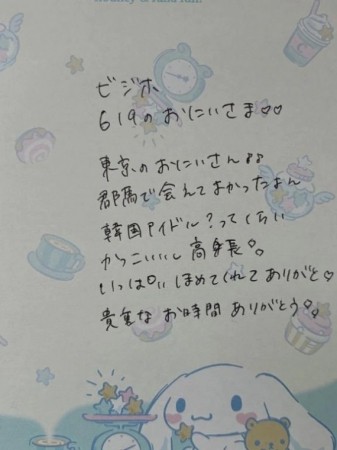 ビジホ
619のおにいさま♡♡
東京のおにいさん♪♪
群馬で会えてよかったよん
韓国アイドル?ってくらい
かっこいいし高身長
いっぱいほめてくれてありがと♡
貴重なお時間ありがとう